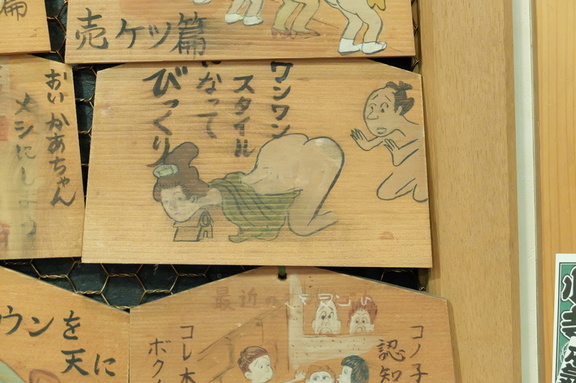 篇
売ケツ篇
おいかあちゃん
メシにしよう
ワンワン
スタイル
になって
びっくり
ウンを
天に
最近の
コノ子
認知
コレ本
ボク